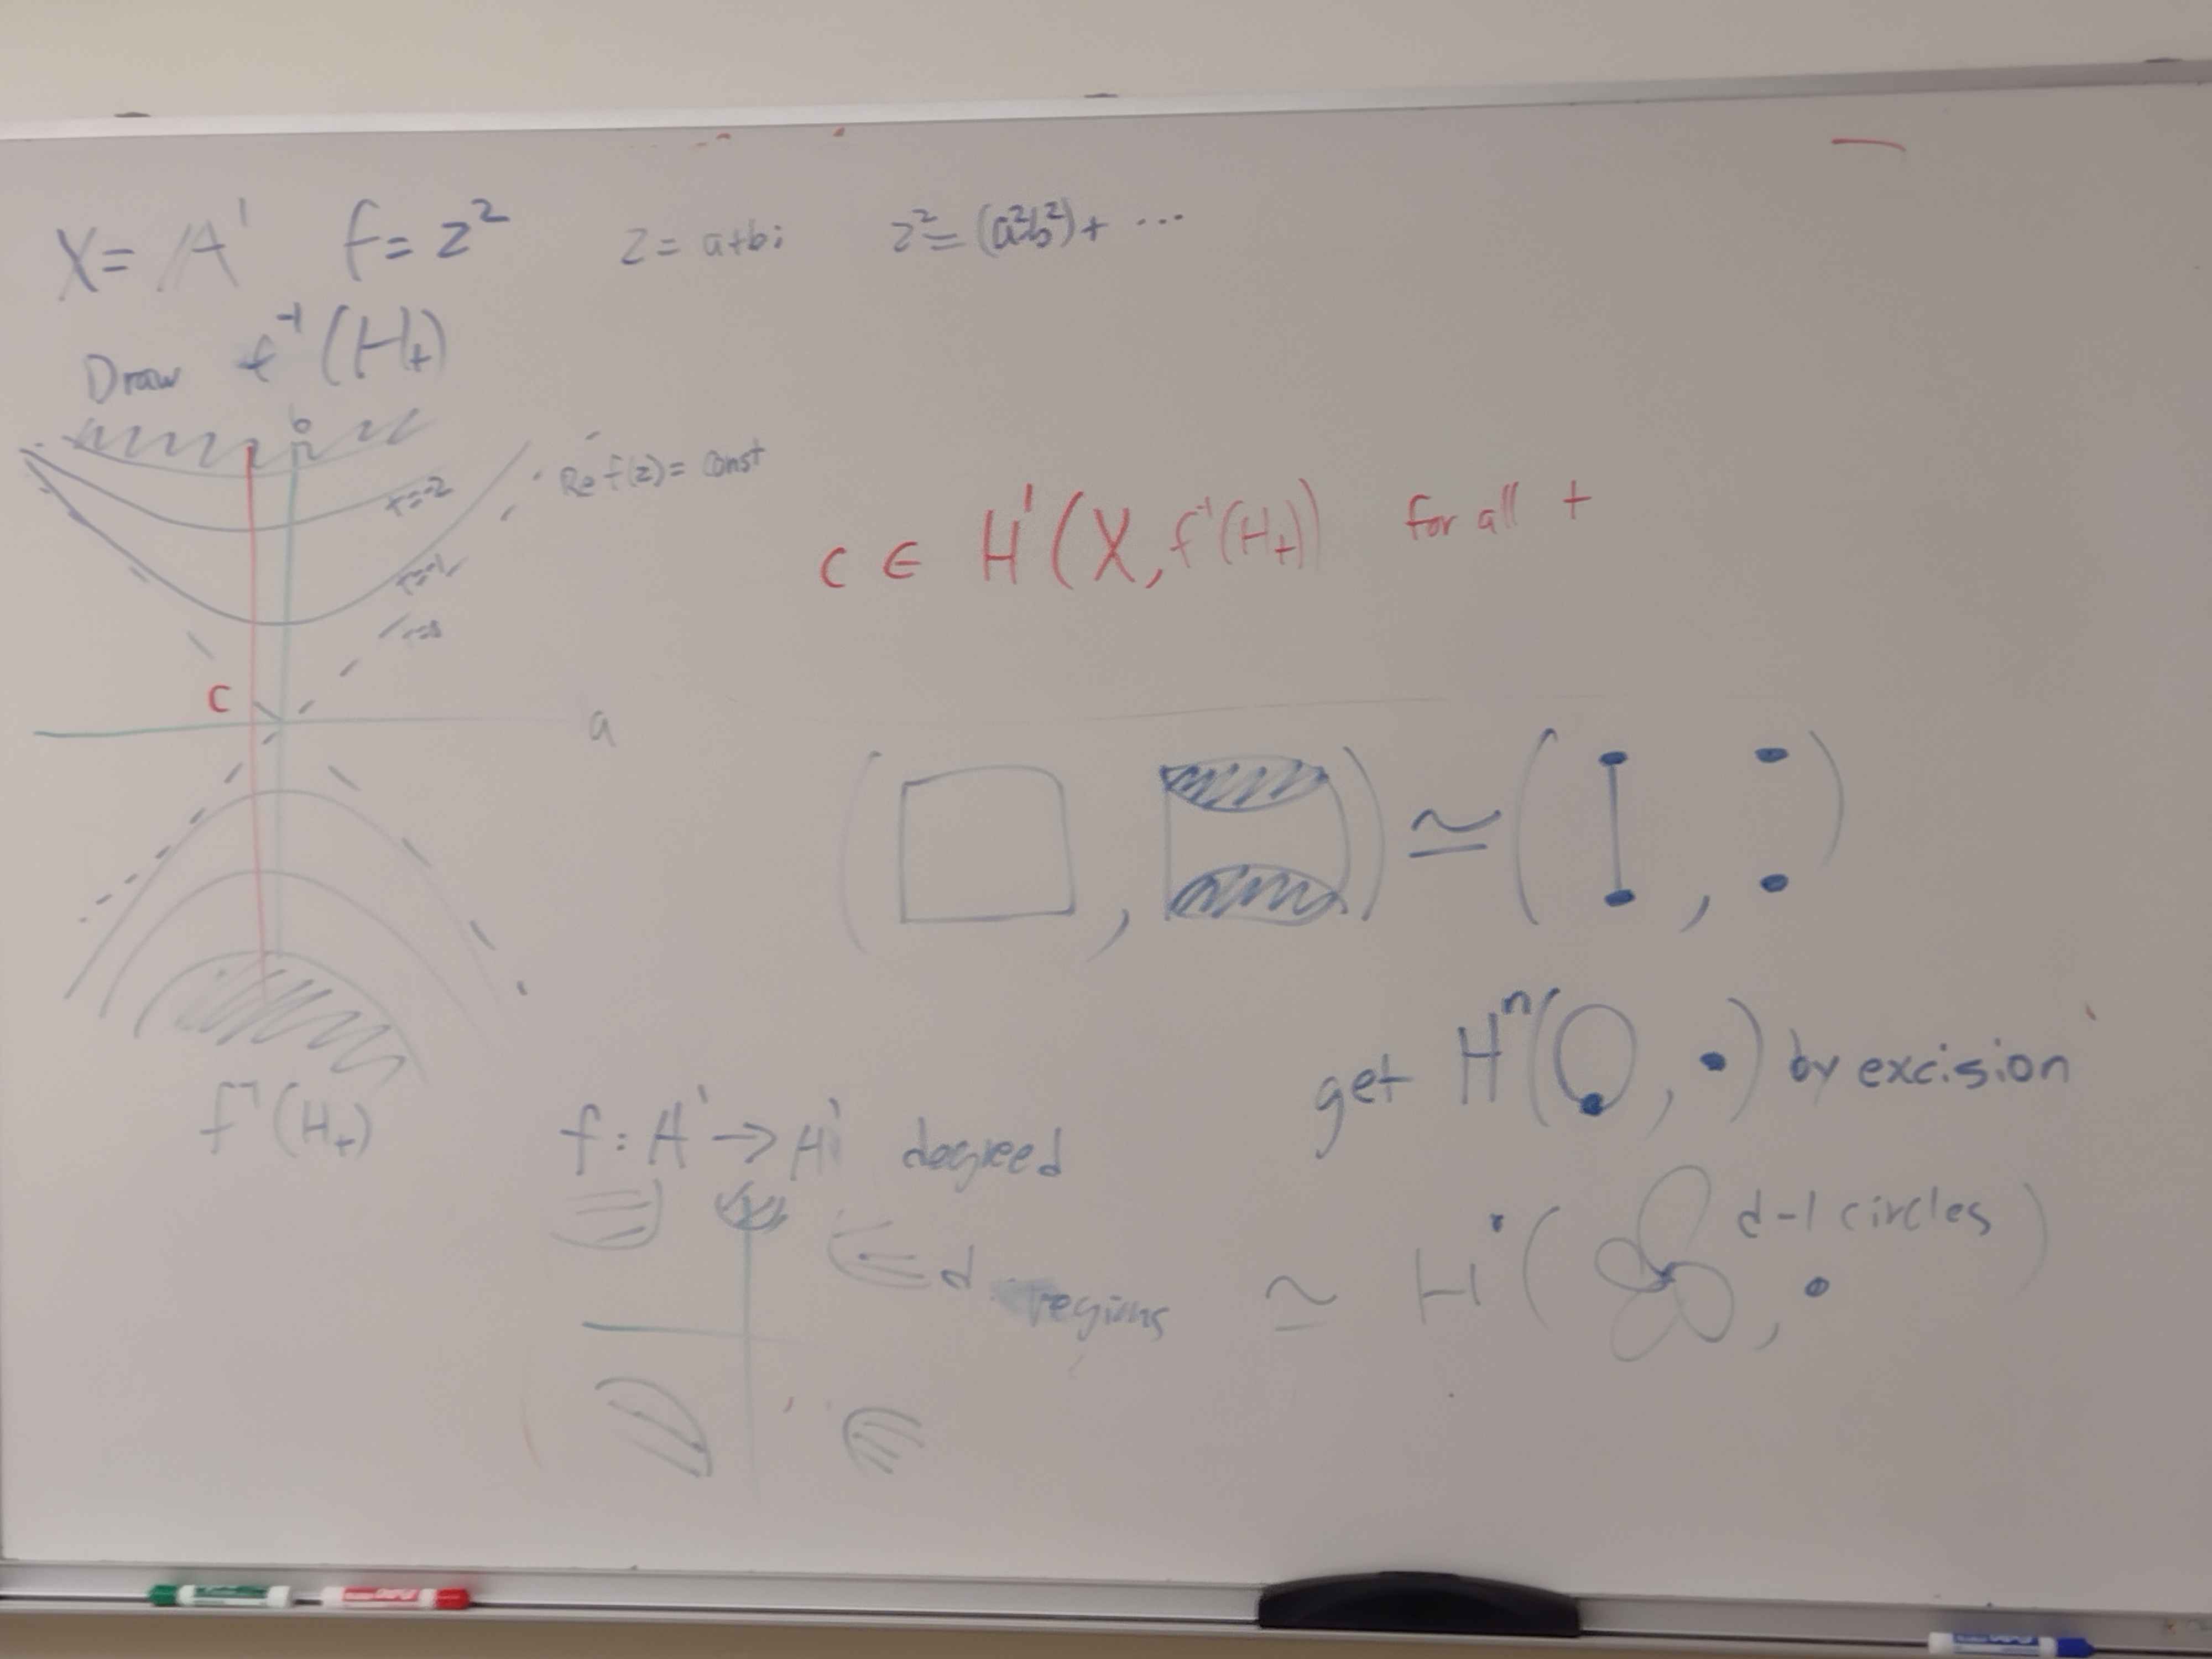 X = A¹ f = z² z = a+bi z² = (a²b²) + ...
Draw f⁻¹(H₊)
b
r=-2
Re f(z) = const
r=-1
c
a
c ∈ H¹(X, f⁻¹(H₊)) for all +
( , ) ≃ ( , )
f⁻¹(H₊)
get Hⁿ( , •) by excision
f: A¹ → A¹ degree d
d regions
≃ H•( d-1 circles , •)